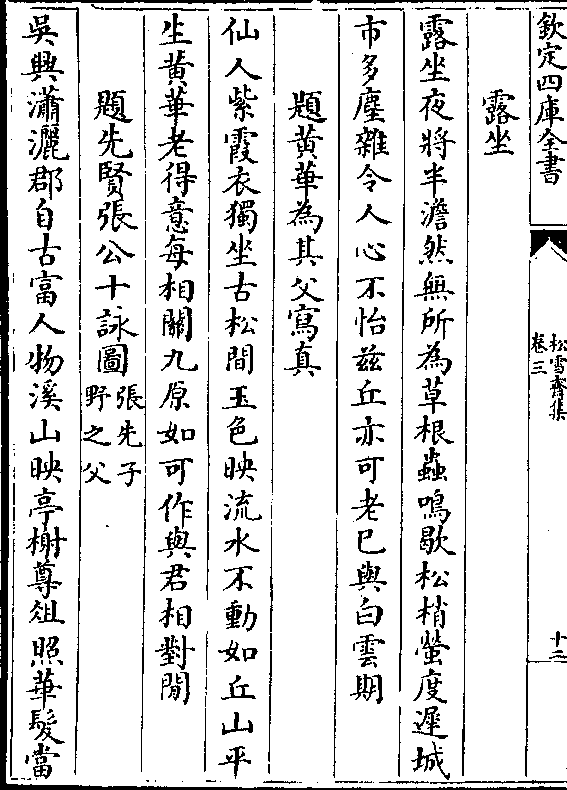 欽定四庫全書
松雪齋集
卷三
十二
露坐
露坐夜將半澹然無所為草根蟲鳴歇松梢螢度遲城
市多塵雜令人心不怡茲丘亦可老已與白雲期
題黃華為其父寫真
仙人紫霞衣獨坐古松間玉色映流水不動如丘山平
生黃華老得意每相關九原如可作與君相對閒
題先賢張公十詠圖
張先子
野之父
吳興瀟灑郡自古富人物溪山映亭榭尊俎照華髮當